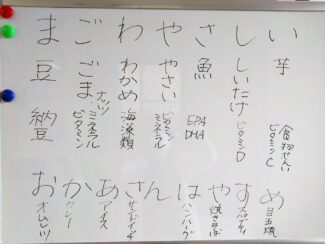 まごわやさしい
豆 ごま わかめ やさい 魚 しいたけ 芋
納豆
ナッツ
ミネラル
ビタミン
海藻類
ビタミン
ミネラル
EPA
DHA
ビタミンD
食物せんい
ビタミンC
おかあさんはやすめ
オムレツ
カレー
アイス
サンドイチ
ハンバーグ
焼きそば
スパゲティ
目玉焼